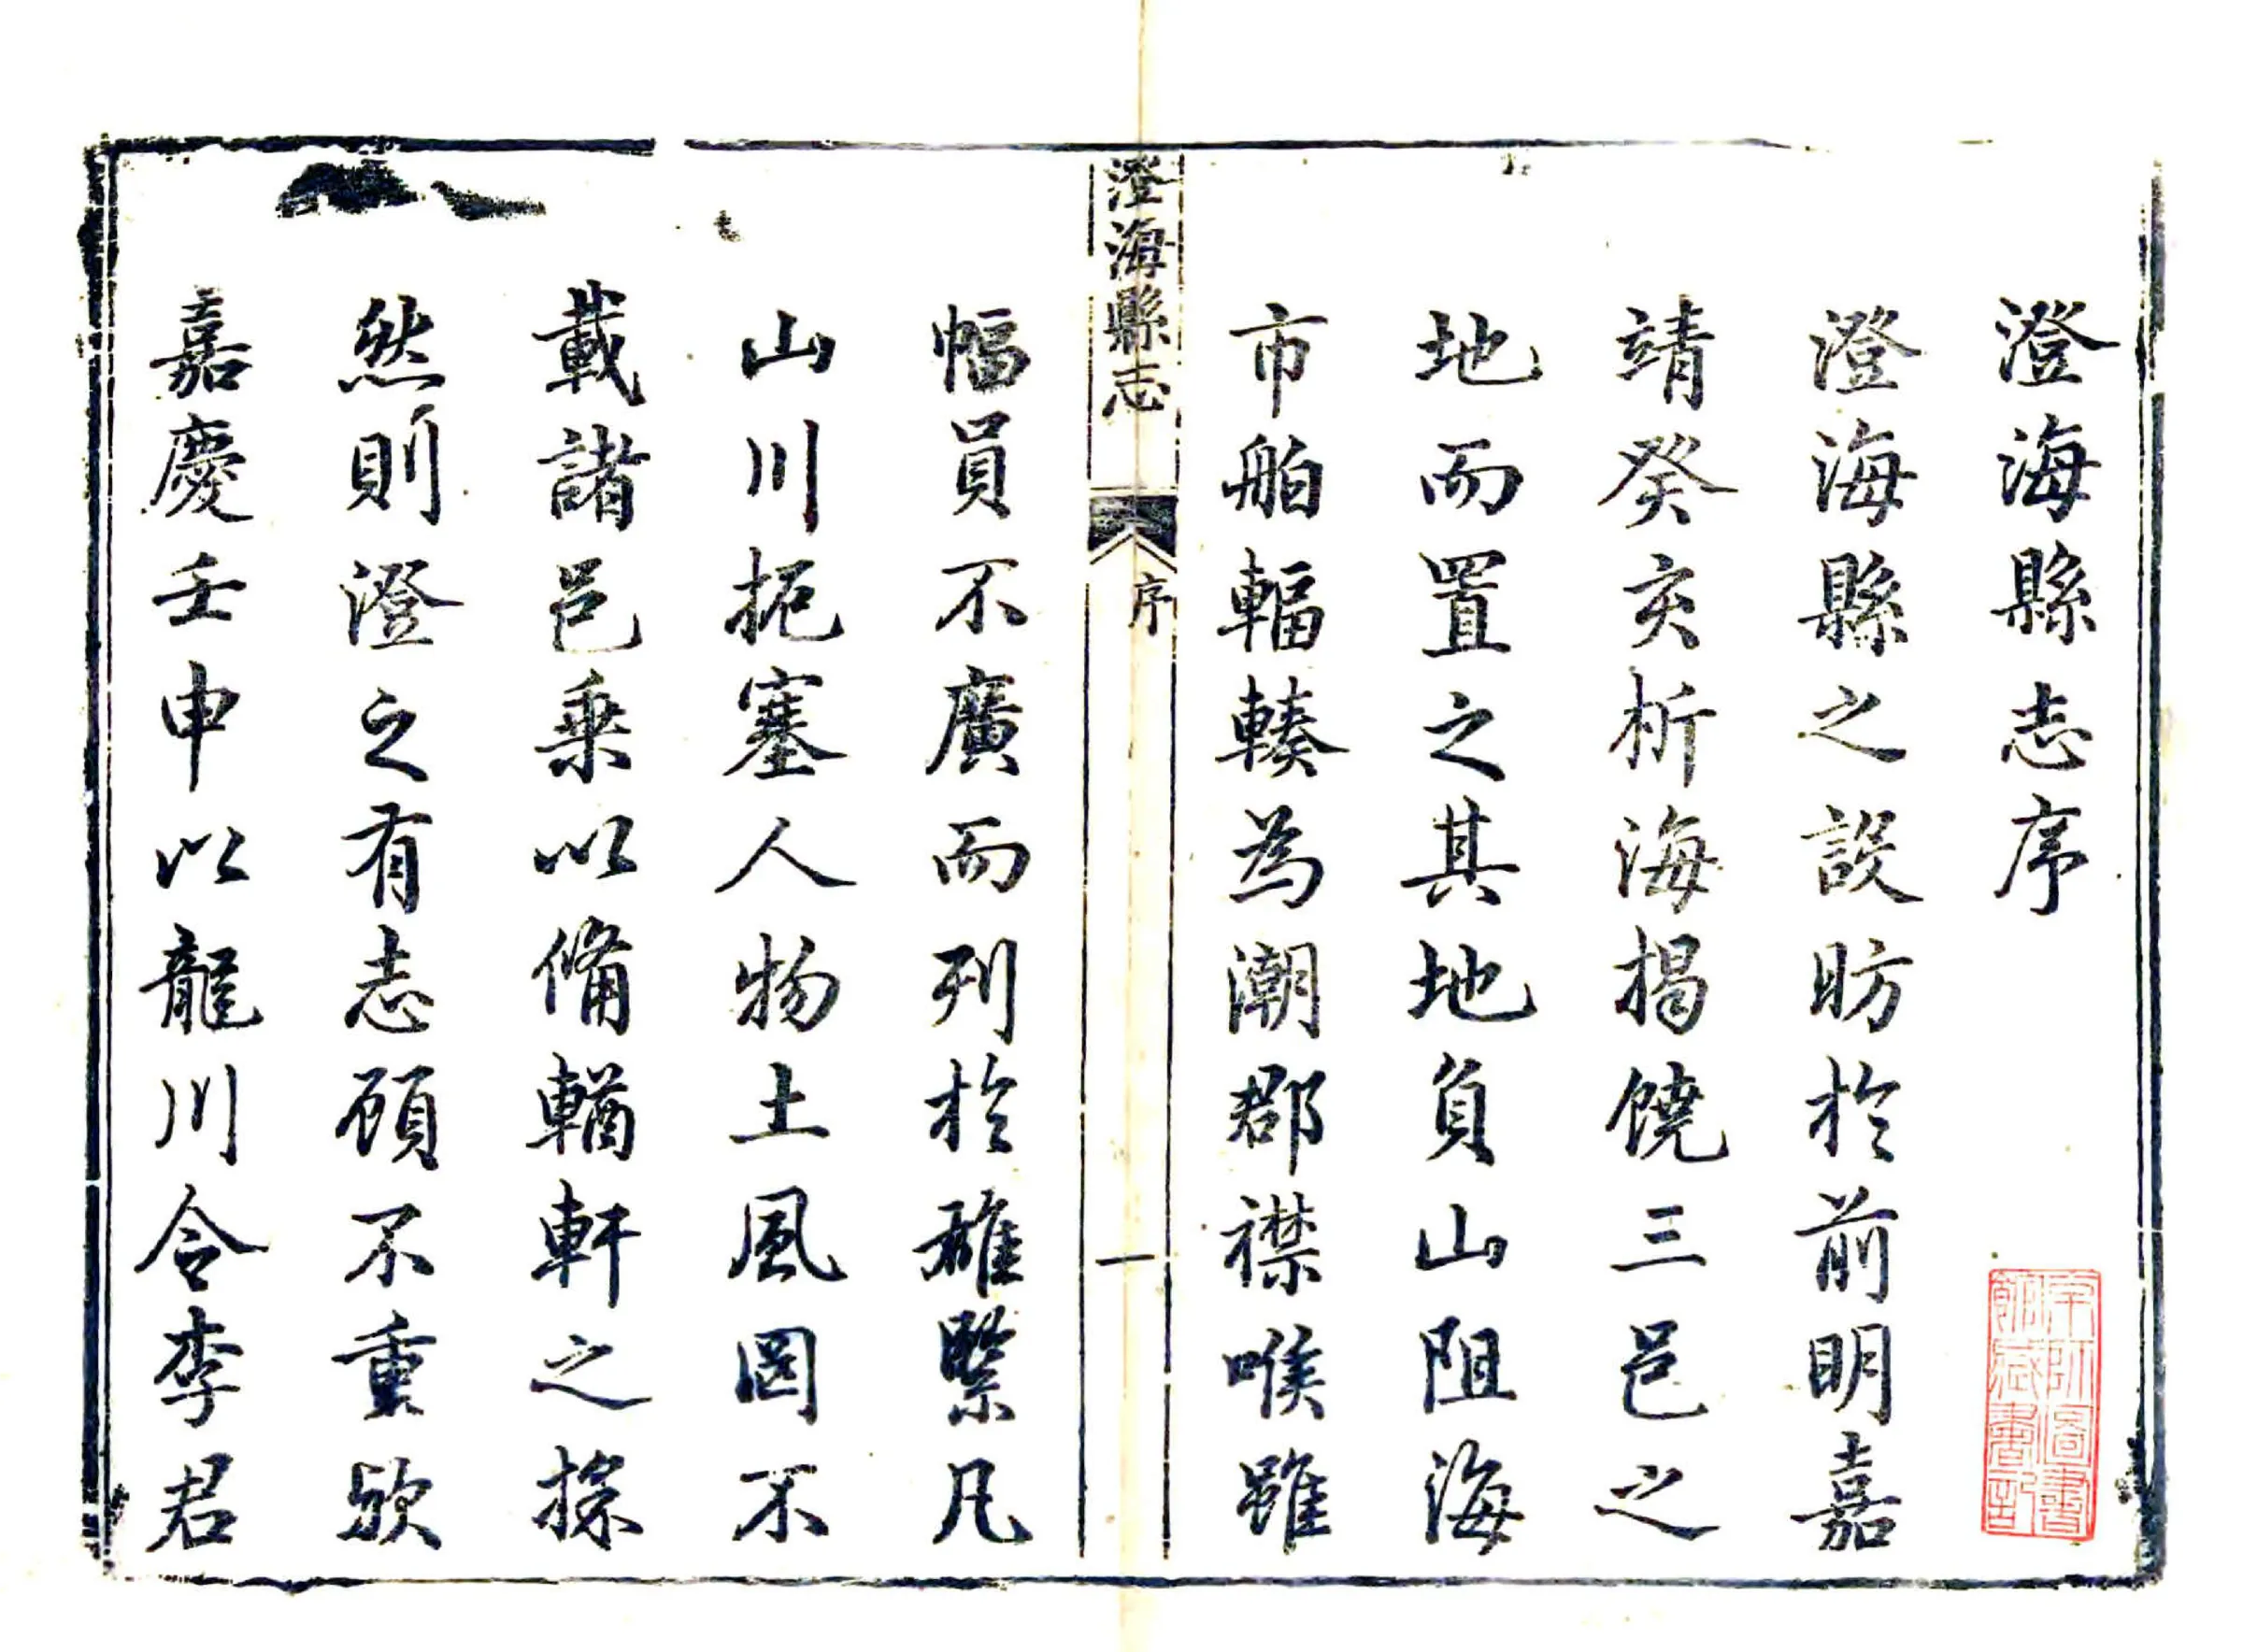 澄海縣志序
澄海縣之設昉於前明嘉
靖癸亥析海揭饒三邑之
地而置之其地負山阻海
市舶輻輳為潮郡襟喉雖
澄海縣志
序
一
幅員不廣而列於雄緊凡
山川扼塞人物土風罔不
載諸邑乘以備輶軒之採
然則澄之有志顧不重歟
嘉慶壬申以龍川令李君